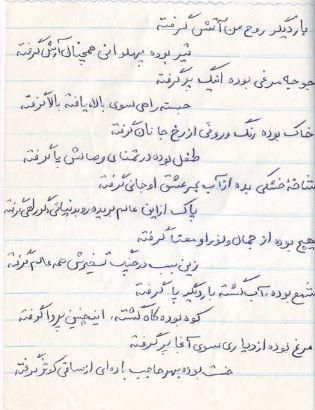 بار دیگر روح من آتش گرفته
تیر بوده پهلوانی همچنان آرش گرفته
جوجه مرغی بوده اینک پر گرفته
جسته راهی سوی بالا یافته بالا گرفته
خاک بوده رنگ و روئی از رخ جانان گرفته
طفل بوده در تمنای وصالش پا گرفته
خشکی بده از آب بحر عشق او جانی گرفته
پاک از این عالم بریده رو به دنیائی دگر راهی گرفته
هیچ بوده از جمال و نور او معنا گرفته
زین سبب در جنب تسخیرش همه عالم گرفته
شمع بوده، آب گشته بار دیگر پا گرفته
کوه بوده کاه گشته، اینچنین پروا گرفته
مرغ بوده از دیاری سوی آنجا پر گرفته
خشت بوده بهر حاجب باده‌ای از ساقی کوثر گرفته